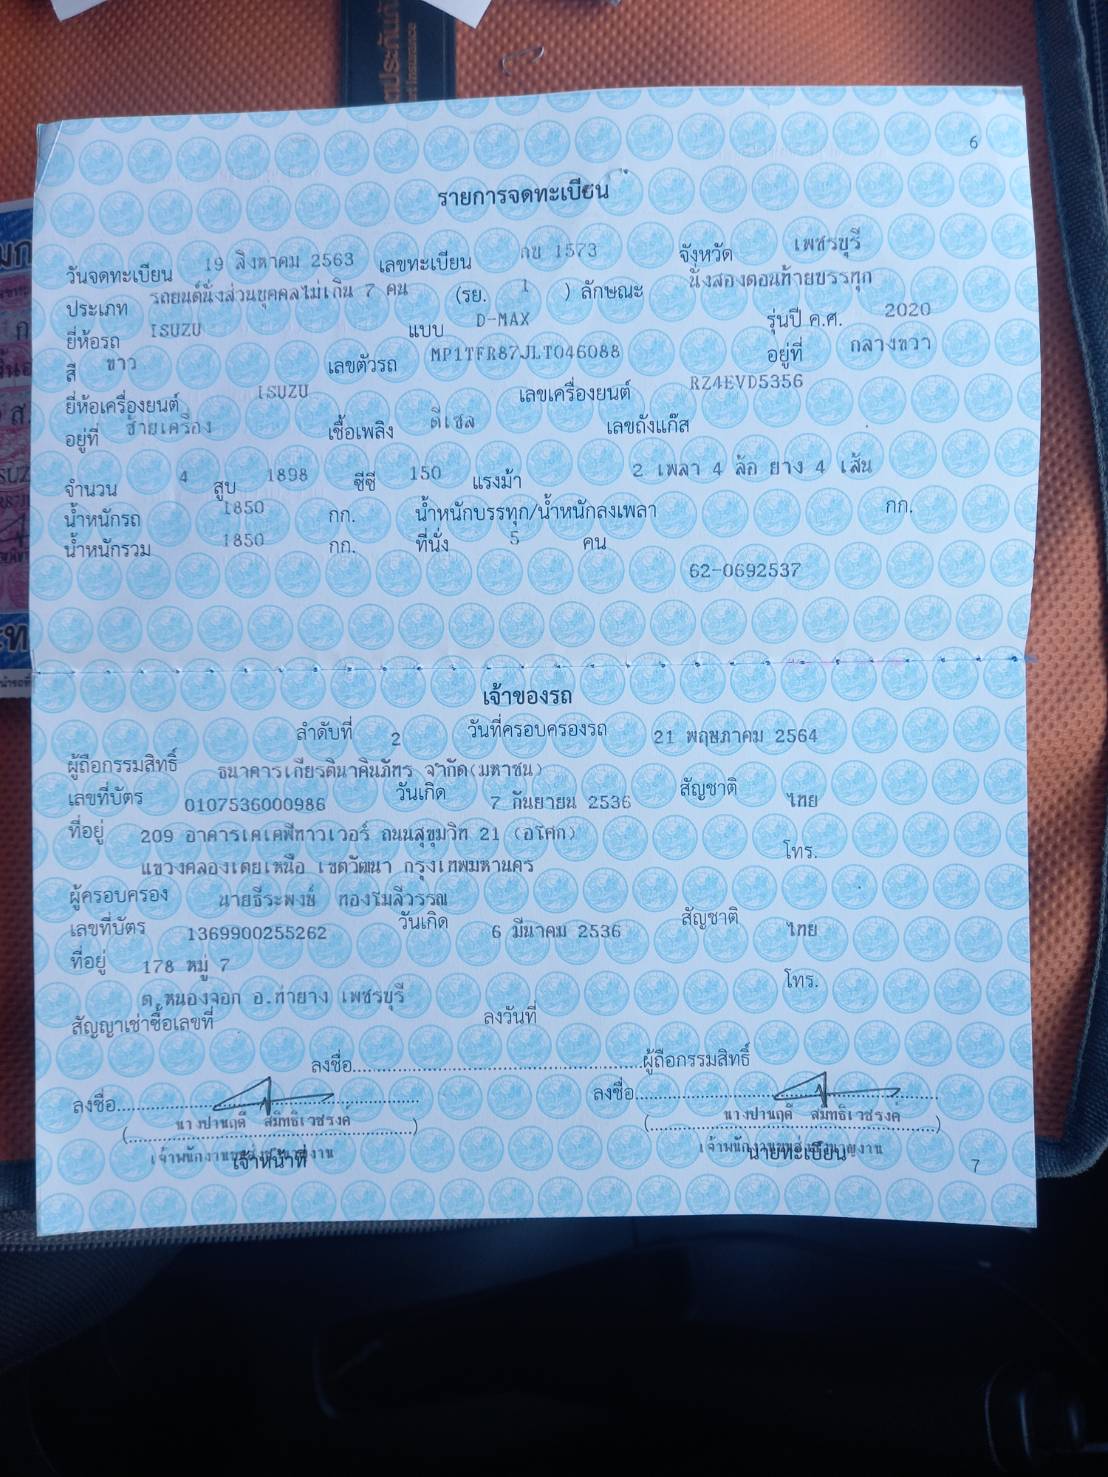 ประกันภั
Insurance
6
รายการจดทะเบียน
วันจดทะเบียน 19 สิงหาคม 2563 เลขทะเบียน กข 1573 จังหวัด เพชรบุรี
ประเภท รถยนต์นั่งส่วนบุคคลไม่เกิน 7 คน (รย. 1 ) ลักษณะ นั่งสองตอนท้ายบรรทุก
ยี่ห้อรถ ISUZU แบบ D-MAX รุ่นปี ค.ศ. 2020
สี ขาว เลขตัวรถ MP1TFR87JLT046088 อยู่ที่ กลางขวา
ยี่ห้อเครื่องยนต์ ISUZU เลขเครื่องยนต์ RZ4EVD5356
อยู่ที่ ซ้ายเครื่อง เชื้อเพลิง ดีเซล เลขถังแก๊ส
จำนวน 4 สูบ 1898 ซีซี 150 แรงม้า 2 เพลา 4 ล้อ ยาง 4 เส้น
น้ำหนักรถ 1850 กก. น้ำหนักบรรทุก/น้ำหนักลงเพลา กก.
น้ำหนักรวม 1850 กก. ที่นั่ง 5 คน
62-0692537
เจ้าของรถ
ลำดับที่ 2 วันที่ครอบครองรถ 21 พฤษภาคม 2564
ผู้ถือกรรมสิทธิ์ ธนาคารเกียรตินาคินภัทร จำกัด(มหาชน)
เลขที่บัตร 0107536000986 วันเกิด 7 กันยายน 2536 สัญชาติ ไทย
ที่อยู่ 209 อาคารเคเคพีทาวเวอร์ ถนนสุขุมวิท 21 (อโศก)
แขวงคลองเตยเหนือ เขตวัฒนา กรุงเทพมหานคร โทร.
ผู้ครอบครอง นายธีระพงษ์ ทองโมลีวรรณ
เลขที่บัตร 1369900255262 วันเกิด 6 มีนาคม 2536 สัญชาติ ไทย
ที่อยู่ 178 หมู่ 7
ต.หนองจอก อ.ท่ายาง เพชรบุรี โทร.
สัญญาเช่าซื้อเลขที่ ลงวันที่
ลงชื่อ............ผู้ถือกรรมสิทธิ์
ลงชื่อ............ ลงชื่อ............
(นางปานฤดี สมิทธิเวชรงค์) (นางปานฤดี สมิทธิเวชรงค์)
เจ้าหน้าที่ นายทะเบียน
7